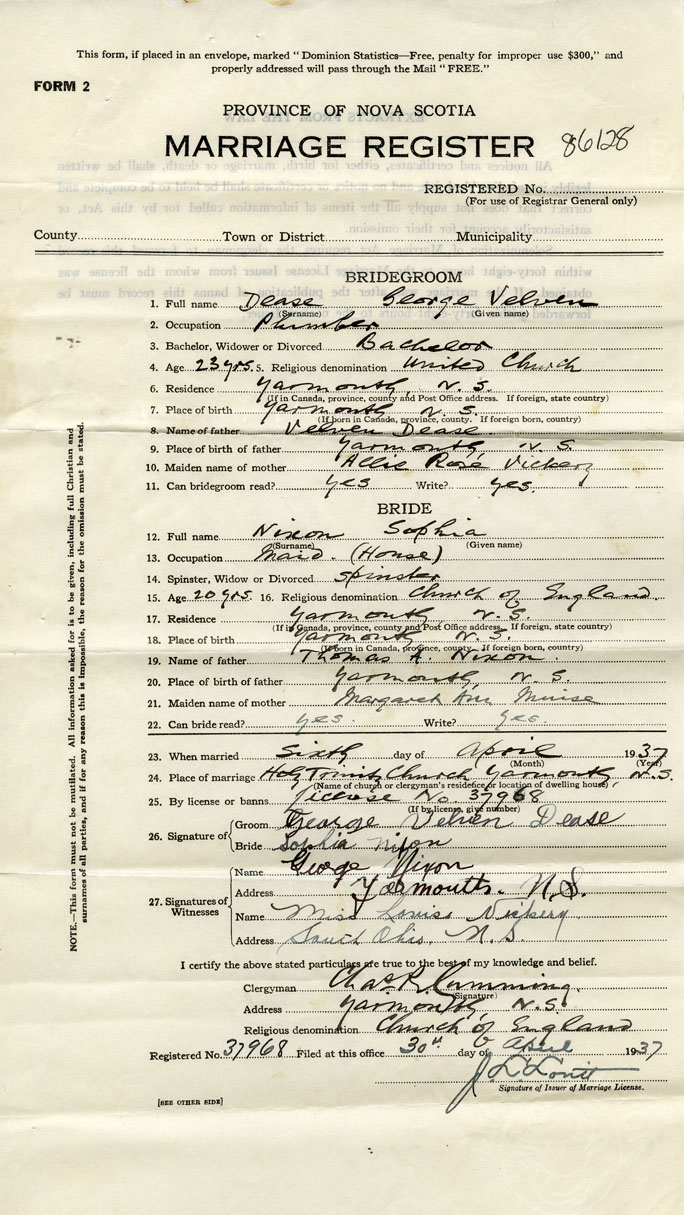 This form, if placed in an envelope, marked "Dominion Statistics—Free, penalty for improper use $300," and
properly addressed will pass through the Mail "FREE."
FORM 2
PROVINCE OF NOVA SCOTIA
MARRIAGE REGISTER 86128
REGISTERED No.
(For use of Registrar General only)
County Town or District Municipality
BRIDEGROOM
1. Full name Dease George Velven
(Surname) (Given name)
2. Occupation Plumber
3. Bachelor, Widower or Divorced Bachelor
4. Age 23 yrs. 5. Religious denomination United Church
6. Residence Yarmouth, N. S.
(If in Canada, province, county and Post Office address. If foreign, state country)
7. Place of birth Yarmouth N. S.
(If born in Canada, province, county. If foreign born, country)
8. Name of father Velven Dease
9. Place of birth of father Yarmouth, N. S.
10. Maiden name of mother Allie Rose Vickery
11. Can bridegroom read? yes Write? yes.
BRIDE
12. Full name Nixon Sophia
(Surname) (Given name)
13. Occupation Maid. (House)
14. Spinster, Widow or Divorced Spinster
15. Age 20 yrs. 16. Religious denomination Church of England
17. Residence Yarmouth, N. S.
(If in Canada, province, county and Post Office address. If foreign, state country)
18. Place of birth Yarmouth N. S.
(If born in Canada, province, county. If foreign born, country)
19. Name of father Thomas A. Nixon
20. Place of birth of father Yarmouth, N. S.
21. Maiden name of mother Margaret Ann Muise
22. Can bride read? yes. Write? yes.
23. When married Sixth day of April 1937
(Month) (Year)
24. Place of marriage Holy Trinity Church Yarmouth, N.S.
(Name of church or clergyman's residence or location of dwelling house)
25. By license or banns License No. 37968
(If by license, give number)
26. Signature of
Groom George Velven Dease
Bride Sophia Nixon
27. Signatures of Witnesses
Name George Nixon
Address Yarmouth. N.S.
Name Miss Louise Vickery
Address South Ohio. N. S.
I certify the above stated particulars are true to the best of my knowledge and belief.
Clergyman Chas. R. Cumming.
(Signature)
Address Yarmouth, N.S.
Religious denomination Church of England
Registered No. 37968 Filed at this office 30th day of April 1937
J. L. Lovitt
Signature of Issuer of Marriage License.
[SEE OTHER SIDE]
NOTE.—This form must not be mutilated. All information asked for is to be given, including full Christian and
surnames of all parties, and if for any reason this is impossible, the reason for the omission must be stated.